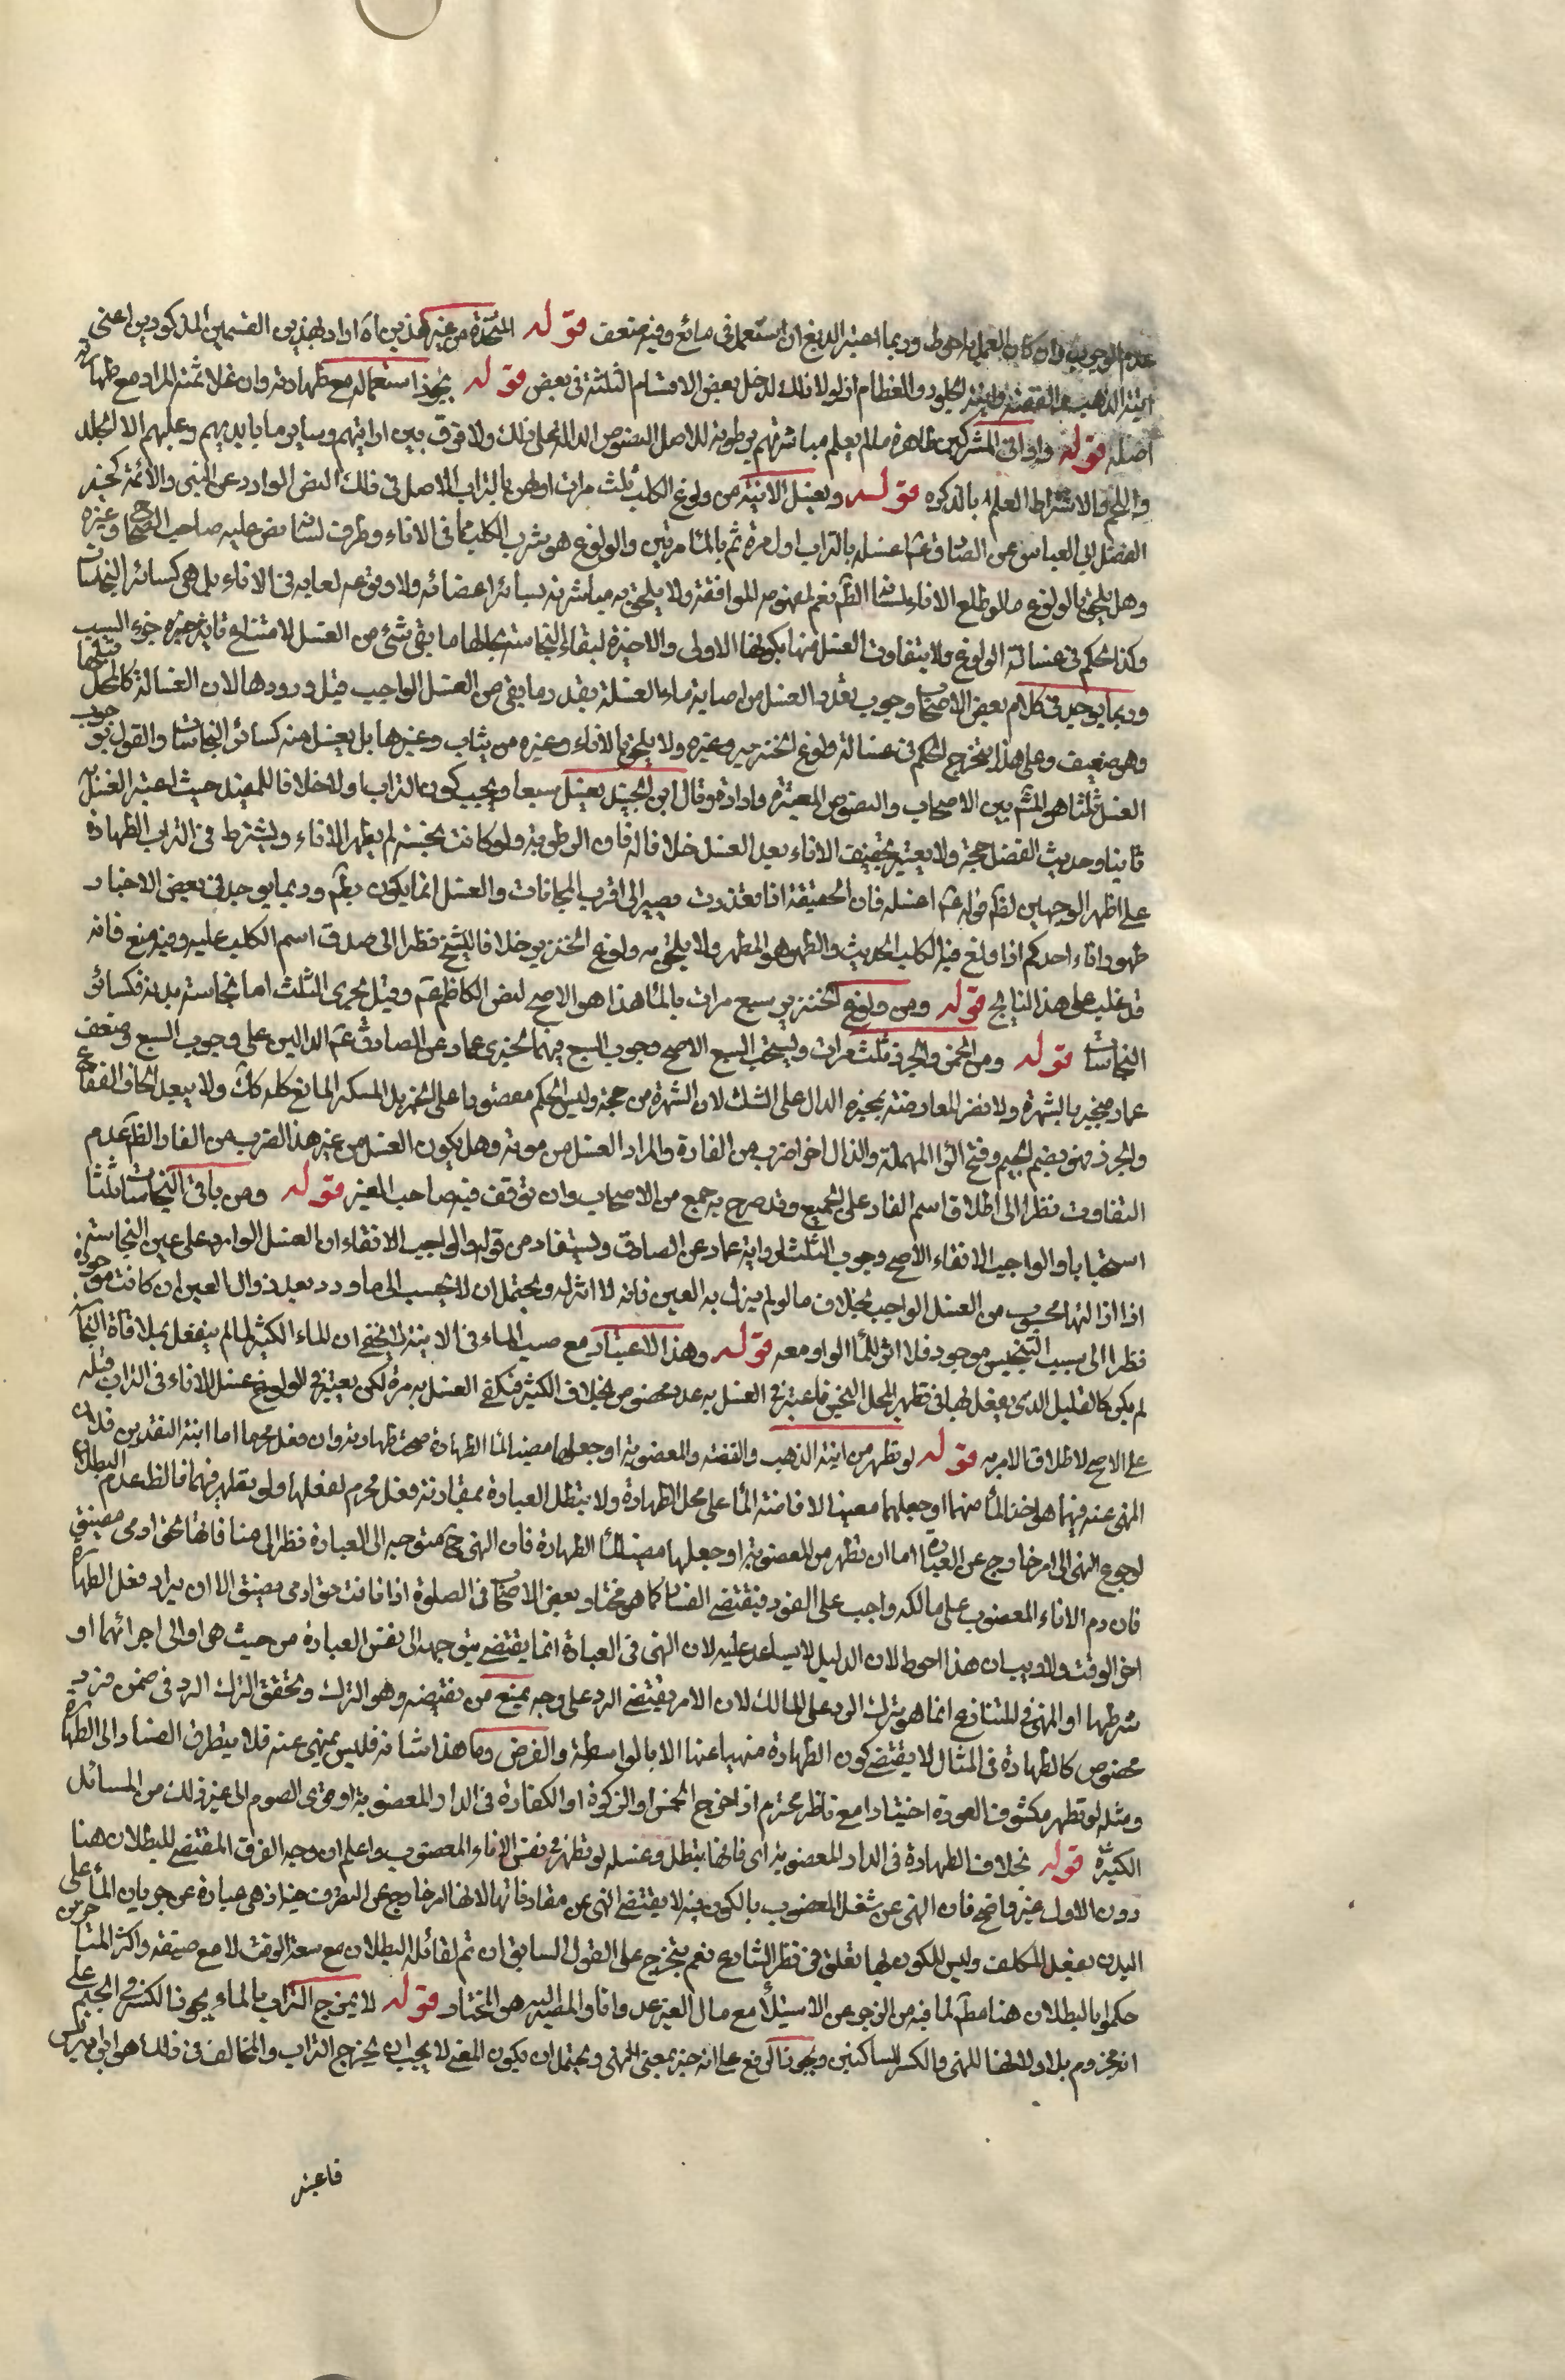 عدم الوجوب وان كان العمل به احوط وربما اعتبر الدبغ ان استعمل فى مائع وفيه ضعف قوله المتخذة من غير هذين اه اراد بهذين القسمين المذكورين اعنى
انية الذهب والفضة وانية الجلود والعظام اذ لولا ذلك لدخل بعض الاقسام الثلثة فى بعض قوله يجوز استعماله مع طهارته وان غلا ثمنه المراد مع طهارة
اصله قوله واوانى المشركين طاهرة ما لم يعلم مباشرتهم برطوبة للاصل النصوص الدالة على ذلك ولا فرق بين اوانيهم وساير ما بايديهم وعليهم الا الجلد
واللحم والاشتراط العلم بالذكوه قوله ويغسل الانية من ولوغ الكلب ثلث مرات اولهن بالتراب الاصل فى ذلك النص الوارد عن النبى والائمة كخبر
الفضل ابى العباس عن الصادق ع اغسله بالتراب اول مرة ثم بالماء مرتين والولوغ هو شرب الكلب مما فى الاناء وطرف لسانه نص عليه صاحب الصحاح وغيره
وهل يلحق بالولوغ ما لو طلع الاناء بلسانه الظم نعم لمفهوم الموافقة ولا يلحق به مباشرته بسائر اعضائه ولا وقوع لعابه فى الاناء بل هى كسائر النجاسات
وكذا الحكم فى غسالة الولوغ ولا يتفاوت الغسل منها بكونها الاولى والاخيرة لبقاء النجاسة بحالها ما بقى شئ من الغسل لامتناع تاثير جزء السبب
وربما يوجد فى كلام بعض الاصحاب وجوب تعدد الغسل من اصابة ماء الغسلة بقدر ما بقى من الغسل الواجب قبل ورودها لان الغسالة كالمحل قبلها
وهو ضعيف وعلى هذا يتخرج الحكم فى غسالة ولوغ الخنزير وغيره ولا يلحق بالاناء وغيره من ثياب وغيرها بل يغسل منه كسائر النجاسات والقول بوجوب
الغسل ثلثا هو المشهور بين الاصحاب والنصوص المعتبرة واردة وقال ابن الجنيد يغسل سبعا ويجب كون بالتراب اولا خلافا للمفيد حيث اعتبر الغسل به
ثانيا وحديث الفضل حجة ولا يعتبر تجفيف الاناء بعد الغسل خلافا له فان الرطوبة ولو كانت نجسة لم يطهر الاناء ويشترط فى التراب الطهارة
على اظهر الوجهين لظم قوله ع اغسله فان الحقيقة اذا تعذرت يصير الى اقرب المجازات والغسل انما يكون بطم وربما يوجد فى بعض الاخبار
طهور اناء احدكم اذا ولغ فيه الكلب الحديث والطهور هو المطهر ولا يلحق به ولوغ الخنزير خلافا للشيخ نظرا الى صدق اسم الكلب عليه وفيه منع فانه
قد غلب على هذا النابح قوله ومن ولوغ الخنزير سبع مرات بالماء هذا هو الاصح لنص الكاظم ع وقيل يجرى الثلث اما نجاسة بدنه فكسائر
النجاسات قوله ومن الخمر والجرذ ثلث مرات ويستحب السبع الاصح وجوب السبع فيهما لخبرى عمار عن الصادق ع الدالين على وجوب السبع وضعف
عمار مجبر بالشهرة ولا نضر المعارضة بخبره الدال على الثلث لان الشهرة من حجة وليس الحكم مقصورا على الخمر بل المسكر المائع كله كك ولا يبعد الحاق الفقاع
والجرذ فهو بضم الجيم وفتح الراء المهملة والذال اخر ضرب من الفارة والمراد الغسل من موته وهل يكون الغسل من غير هذا الضرب من الفار الظم عدم
التفاوت نظرا الى اطلاق اسم الفار على الجميع وقد صرح به جمع من الاصحاب وان توقف فيه صاحب المعتبر قوله ومن باقى النجاسات ثلثا
استحبابا والواجب الانقاء الاصح وجوب الثلث لرواية عمار عن الصادق ويستفاد من قوله والواجب الانقاء ان الغسل الوارد على عين النجاسة
اذا ازالتها محسوب من الغسل الواجب بخلاف ما لو لم يزل به العين فانه لا اثر له ويحتمل ان لا يحسب الى ما ورد بعد زوال العين ان كانت موجودة
نظرا الى سبب التنجيس موجود فلا اثر للماء الوارد معه قوله وهذا الاعتبار مع صب الماء فى الانية لا يخفى ان الماء الكثير لما لم ينفعل بملاقاة النجاسة
لم يكن كالقليل الذى ينفعل بها فى تطهير المحل النجس فاعتبر فى الغسل به عدد مخصوص بخلاف الكثير فيكفى الغسل به مرة لكن يعتبر فى الولوغ غسل الاناء فى التراب قبله
على الاصح لاطلاق الامر به قوله لو تطهر من انية الذهب والفضة والمغصوبة او جعلها مصبا لماء الطهارة صحت طهارته وان فعل محرما اما انية النقدين فلان
المنهى عنه فيهما هو اخذ الماء منهما او جعلهما مصبا لافاضة الماء على محل الطهارة ولا يبطل العبادة بمقارنة فعل محرم لفعلها ولو تطهر فيهما فالظ عدم البطلان
لرجوع النهى الى امر خارج عن العبادة اما ان تطهر من المغصوبة او جعلها مصبا لماء الطهارة فان النهى ح متوجه الى العبادة نظرا الى منافاتها لحق ادمى مضيق
فان رد الاناء المغصوب على مالكه واجب على الفور فيقتضى الفساد كما هو مختار بعض الاصحاب فى الصلوة اذا نافت حق ادمى مضيق الا ان يراد فعل الطهارة
اخر الوقت ولا ريب ان هذا احوط لان الدليل لا يساعد عليه لان النهى فى العبادة انما يقتضى بتوجهه الى نفس العبادة من حيث هى او الى اجزائها او
شرطها او المنهى فى المتنازع انما هو بترك الرد على المالك لان الامر يقتضى الرد على وجه يمنع من نقيضه وهو الترك وتحقق الترك الرد فى ضمن فرد
مخصوص كالطهارة فى المثال لا يقتضى كون الطهارة منهيا عنها الا بالواسطة والفرض وما هذا شانه فليس بمنهى عنه فلا يتطرق الفساد الى الطهارة
ومثله لو تطهر مكشوف العورة اختيارا مع ناظر محترم اذ اخرج الخمس او الزكوة او الكفارة فى الدار المغصوبة او نوى الصوم الى غير ذلك من المسائل
الكثيرة قوله بخلاف الطهارة فى الدار المغصوبة اى فانها يبطل وغسله لو تطهر فى نفس الاناء المغصوب واعلم ان وجه الفرق المقتضى للبطلان هنا
دون الاول غير واضح فان النهى عن شغل المغصوب بالكون فيه لا يقتضى النهى عن مقارناتها لانها امر خارج عن التصرف حينئذ هى عبارة عن جريان الماء على
البدن بفعل المكلف وليس للكون بها تعلق فى نظر الشارع نعم يتخرج على القول السابق ان تم لقائله البطلان مع سعة الوقت لا مع ضيقه واكثر المتاخرين
حكموا بالبطلان هنا مطم لما فيه من الزجر عن الاستيلاء مع مال الغير عدوانا والمصير اليه هو المختار قوله لا يمزج التراب بالماء يجوز الكسر فى الجيم على
انه مجزوم بلا ولانها للنهى والكسر للساكنين ويجوز الرفع على انه خبر بمعنى النهى ويحتمل ان يكون المعنى لا يجب ان يمزج التراب والمخالف فى ذلك هو ابن ادريس
فاعتبر